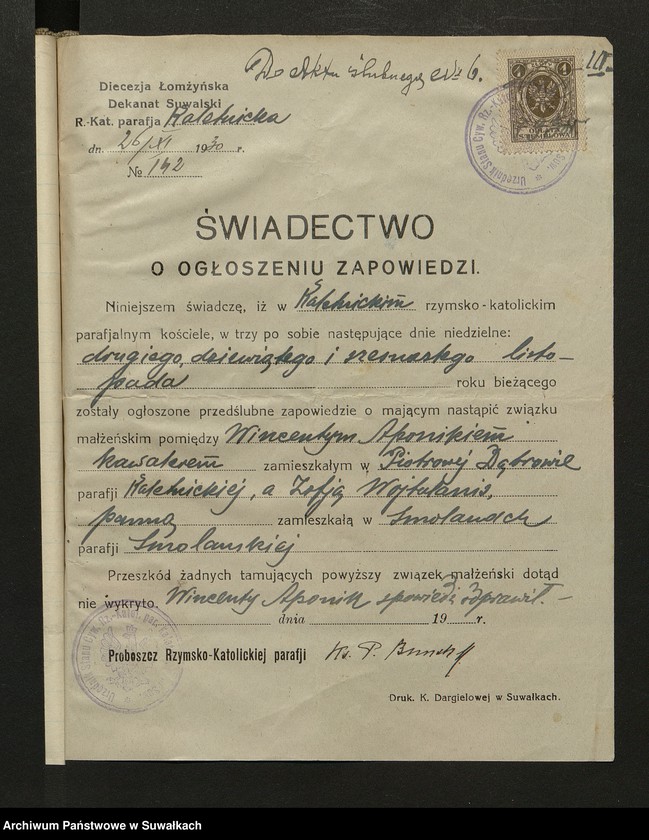 Do aktu ślubnego № 6. III
Diecezja Łomżyńska
Dekanat Suwalski
R.-Kat. parafja Kaletnicka
dn. 26/XI 1930 r.
№ 142
1 1
ŚWIADECTWO
O OGŁOSZENIU ZAPOWIEDZI.
Niniejszem świadczę, iż w Kaletnickim rzymsko-katolickim
parafjalnym kościele, w trzy po sobie następujące dnie niedzielne:
drugiego, dziewiątego i szesnastego listo-
pada roku bieżącego
zostały ogłoszone przedślubne zapowiedzie o mającym nastąpić związku
małżeńskim pomiędzy Wincentym Aponikiem
kawalerem zamieszkałym w Piotrowej Dąbrowie
parafji Kaletnickiej, a Zofją Wojtalanis,
panną zamieszkałą w Smolanach
parafji Smolanskiej
Przeszkód żadnych tamujących powyższy związek małżeński dotąd
nie wykryto. Wincenty Aponik spowiedź odprawił. -
dnia 19 r.
Proboszcz Rzymsko-Katolickiej parafji Ks. P.
Urzędnik Stanu Cyw. Rz.-Katol. par.
Druk. K. Dargielowej w Suwałkach.
Archiwum Państwowe w Suwałkach